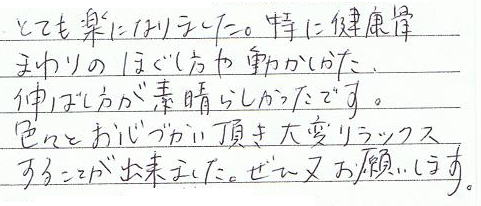 とても楽になりました。特に健康骨
まわりのほぐし方や動かしかた、
伸ばし方が素晴らしかったです。
色々とお心づかい頂き大変リラックス
することが出来ました。ぜひ又お願いします。